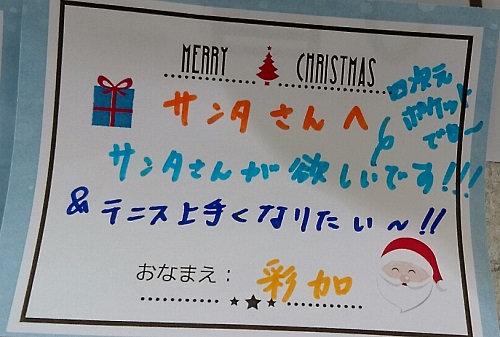 MERRY CHRISTMAS
サンタさんへ
四次元
ポケット
サンタさんが欲しいです!!!
& テニス上手くなりたい〜!!
おなまえ: 彩加